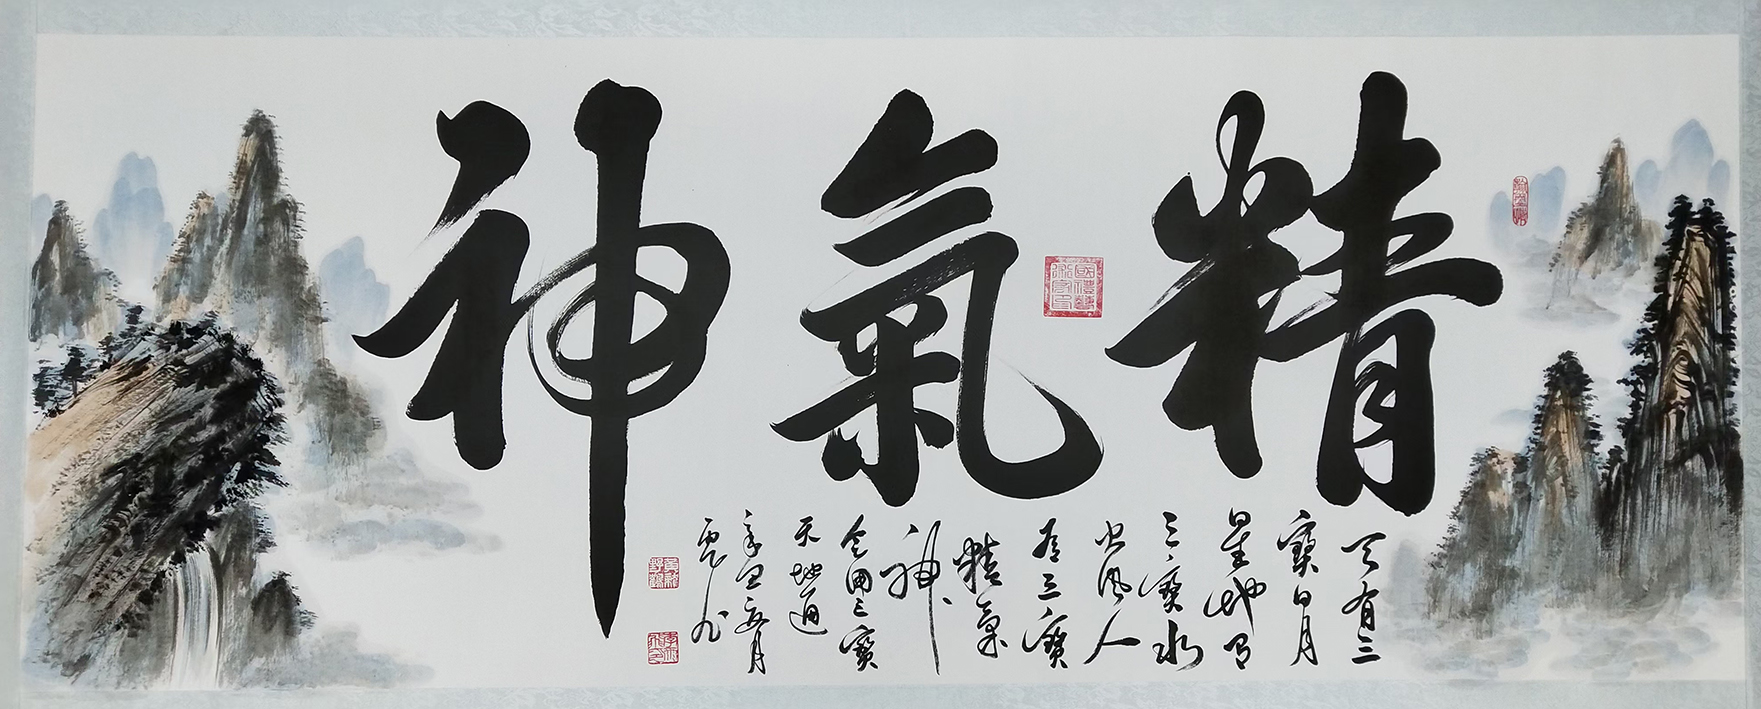 精氣神
天有三
寶日月
星地有
三寶水
火風人
有三寶
精氣
神
会用三寶
天地通
辛丑夏月
國禮藝術家印